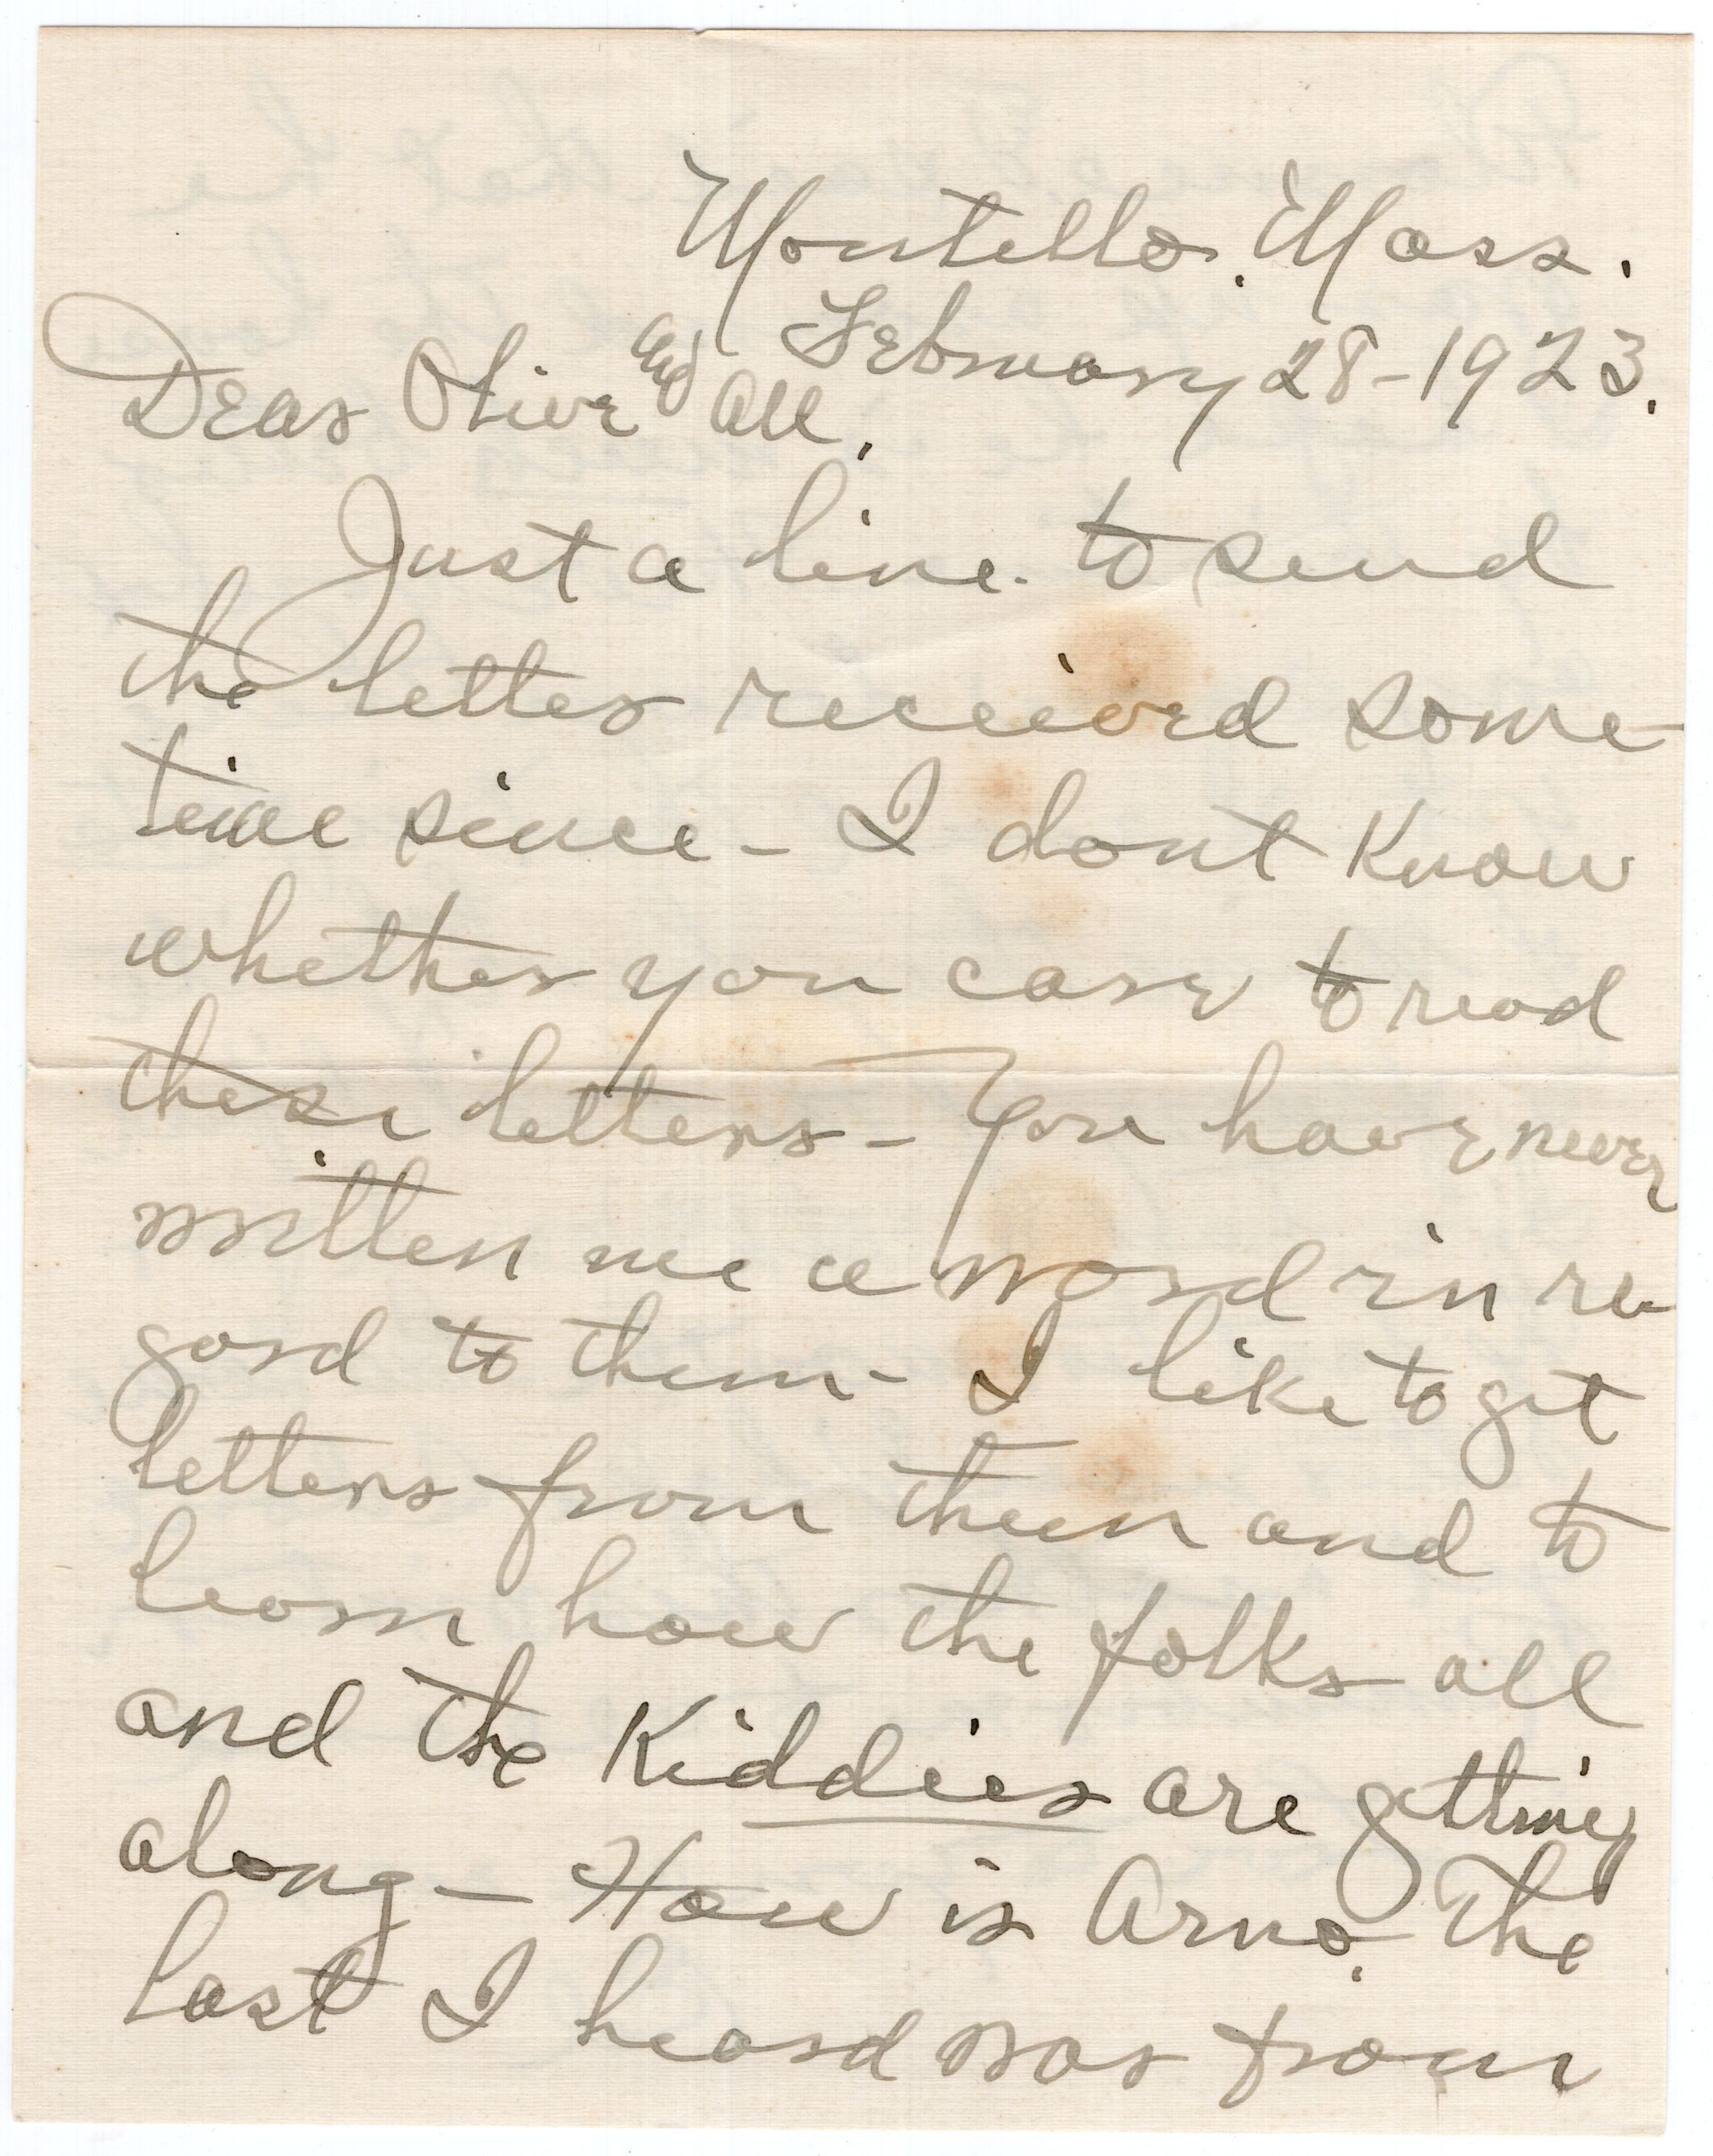 Montello. Mass.
February 28-1923.
Dear Olive and all.
Just a line to send
the letter received some-
time since - I dont know
whether you care to read
these letters - You have never
written me a word in re-
gard to them - I like to get
letters from them and to
learn how the folks all
and the Kiddies are getting
along - How is Arno. The
last I heard was from